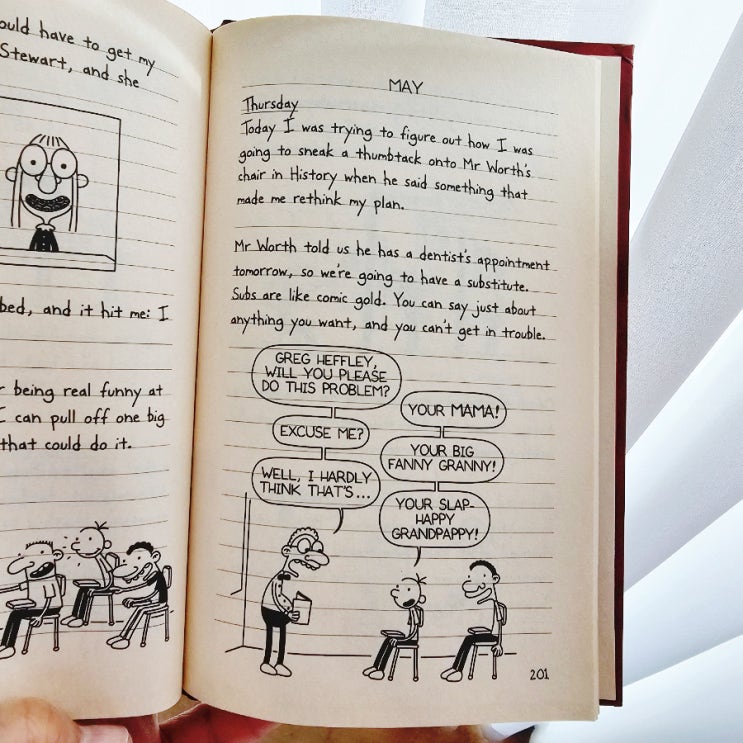 ould have to get my
Stewart, and she
bed, and it hit me: I
r being real funny at
I can pull off one big
that could do it.
MAY
Thursday
Today I was trying to figure out how I was
going to sneak a thumbtack onto Mr Worth's
chair in History when he said something that
made me rethink my plan.
Mr Worth told us he has a dentist's appointment
tomorrow, so we're going to have a substitute.
Subs are like comic gold. You can say just about
anything you want, and you can't get in trouble.
GREG HEFFLEY,
WILL YOU PLEASE
DO THIS PROBLEM?
YOUR MAMA!
EXCUSE ME?
YOUR BIG
FANNY GRANNY!
WELL, I HARDLY
THINK THAT'S...
YOUR SLAP-
HAPPY
GRANDPAPPY!
201